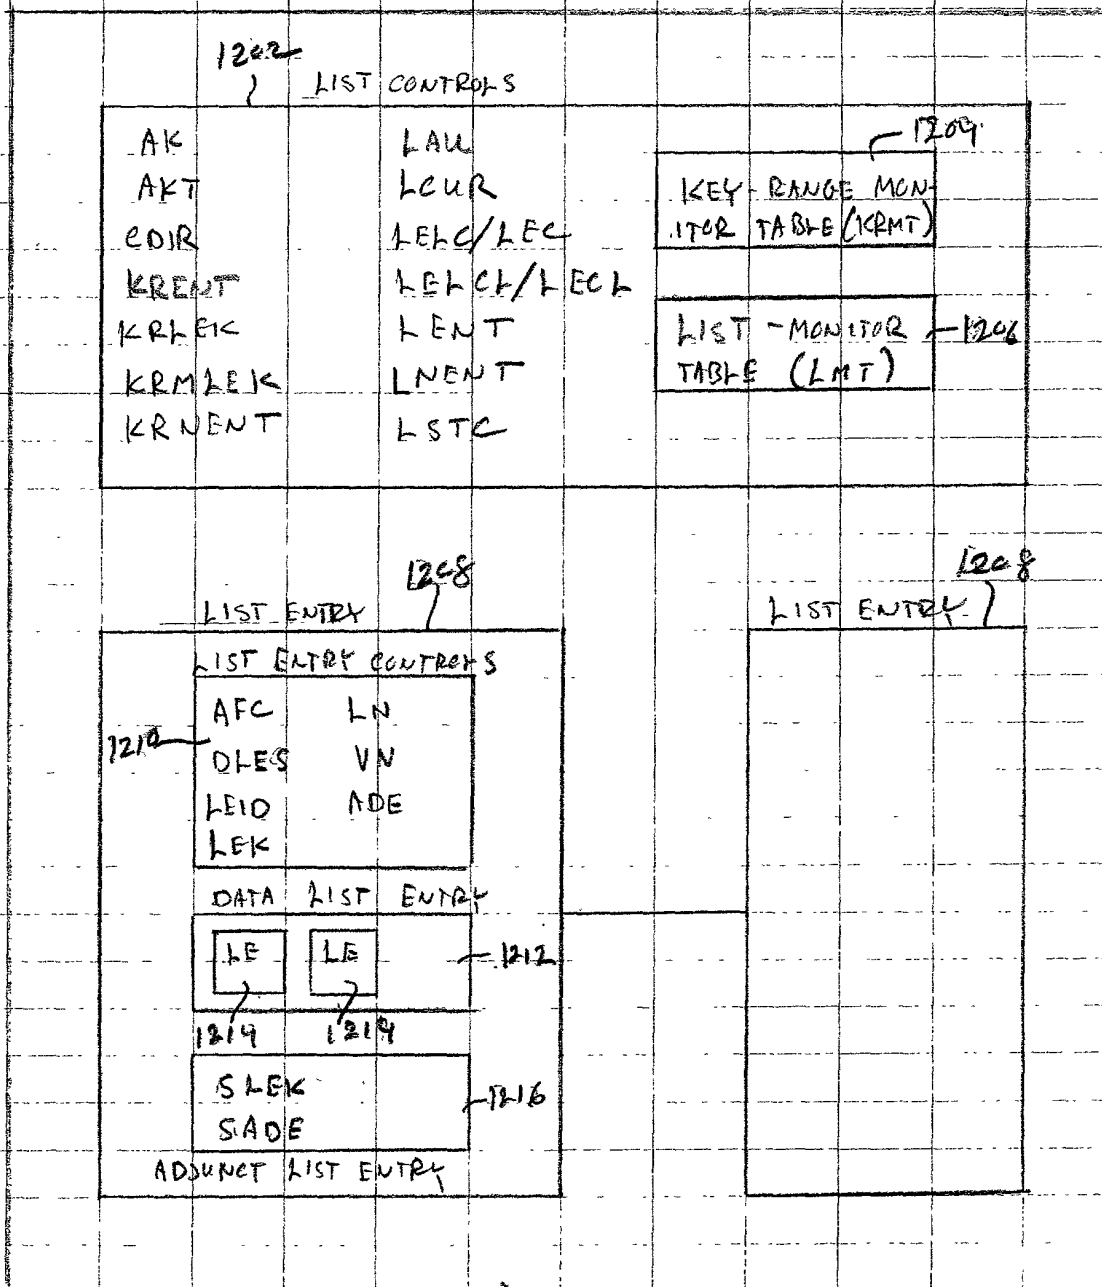 1202
LIST CONTROLS
AK
AKT
CDIR
KRENT
KRLEK
KRMLEK
KRNENT
LAU
LCUR
LELC/LEC
LELCL/LECL
LENT
LNENT
LSTC
1204
KEY-RANGE MON-
ITOR TABLE (KRMT)
LIST-MONITOR
TABLE (LMT)
1206
1208
LIST ENTRY
LIST ENTRY CONTROLS
1210
AFC LN
DLES VN
LEID ADE
LEK
DATA LIST ENTRY
LE LE
1212
1214 1214
SLEK
SADE
1216
ADJUNCT LIST ENTRY
1208
LIST ENTRY